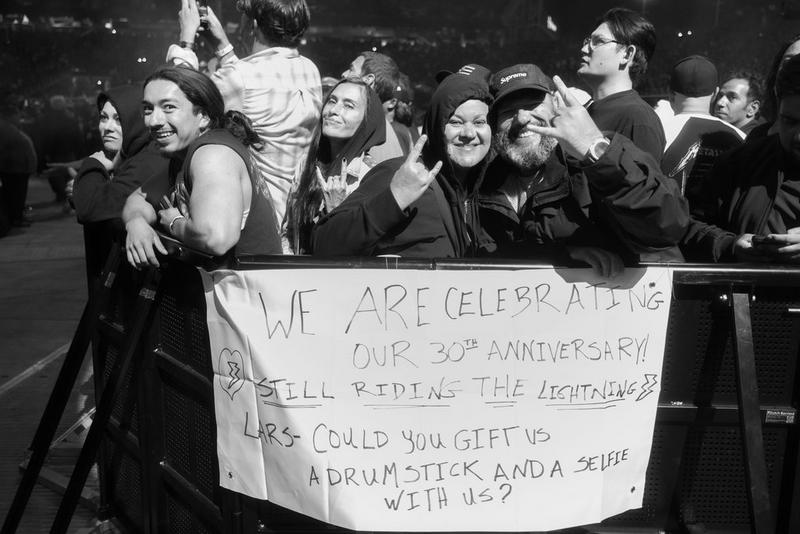 Supreme
WE ARE CELEBRATING
OUR 30TH ANNIVERSARY!
STILL RIDING THE LIGHTNING
LARS- COULD YOU GIFT US
A DRUMSTICK AND A SELFIE
WITH US?